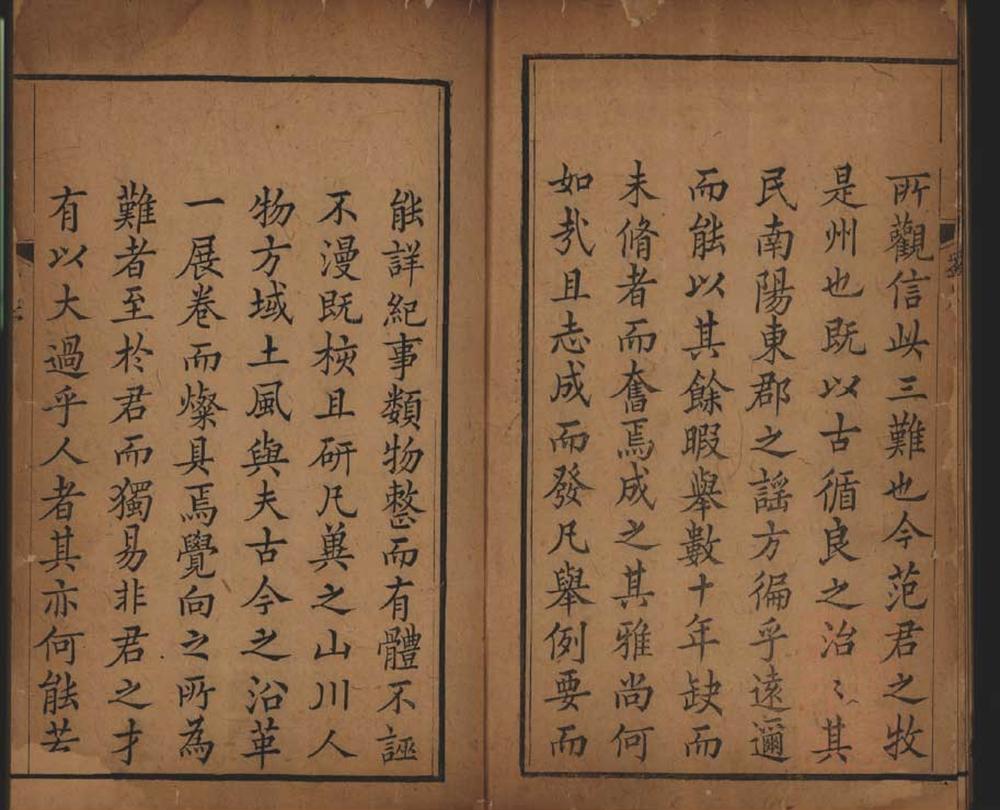 所觀信此三難也今范君之牧
是州也既以古循良之治〻其
民南陽東郡之謡方徧乎遠邇
而能以其餘暇舉數十年缺而
未脩者而奮焉成之其雅尚何
如㢤且志成而發凡舉例要而
能詳紀事類物整而有體不誣
不漫既核且研凡兾之山川人
物方域土風與夫古今之沿革
一展卷而燦具焉覺向之所為
難者至於君而獨易非君之才
有以大過乎人者其亦何能若